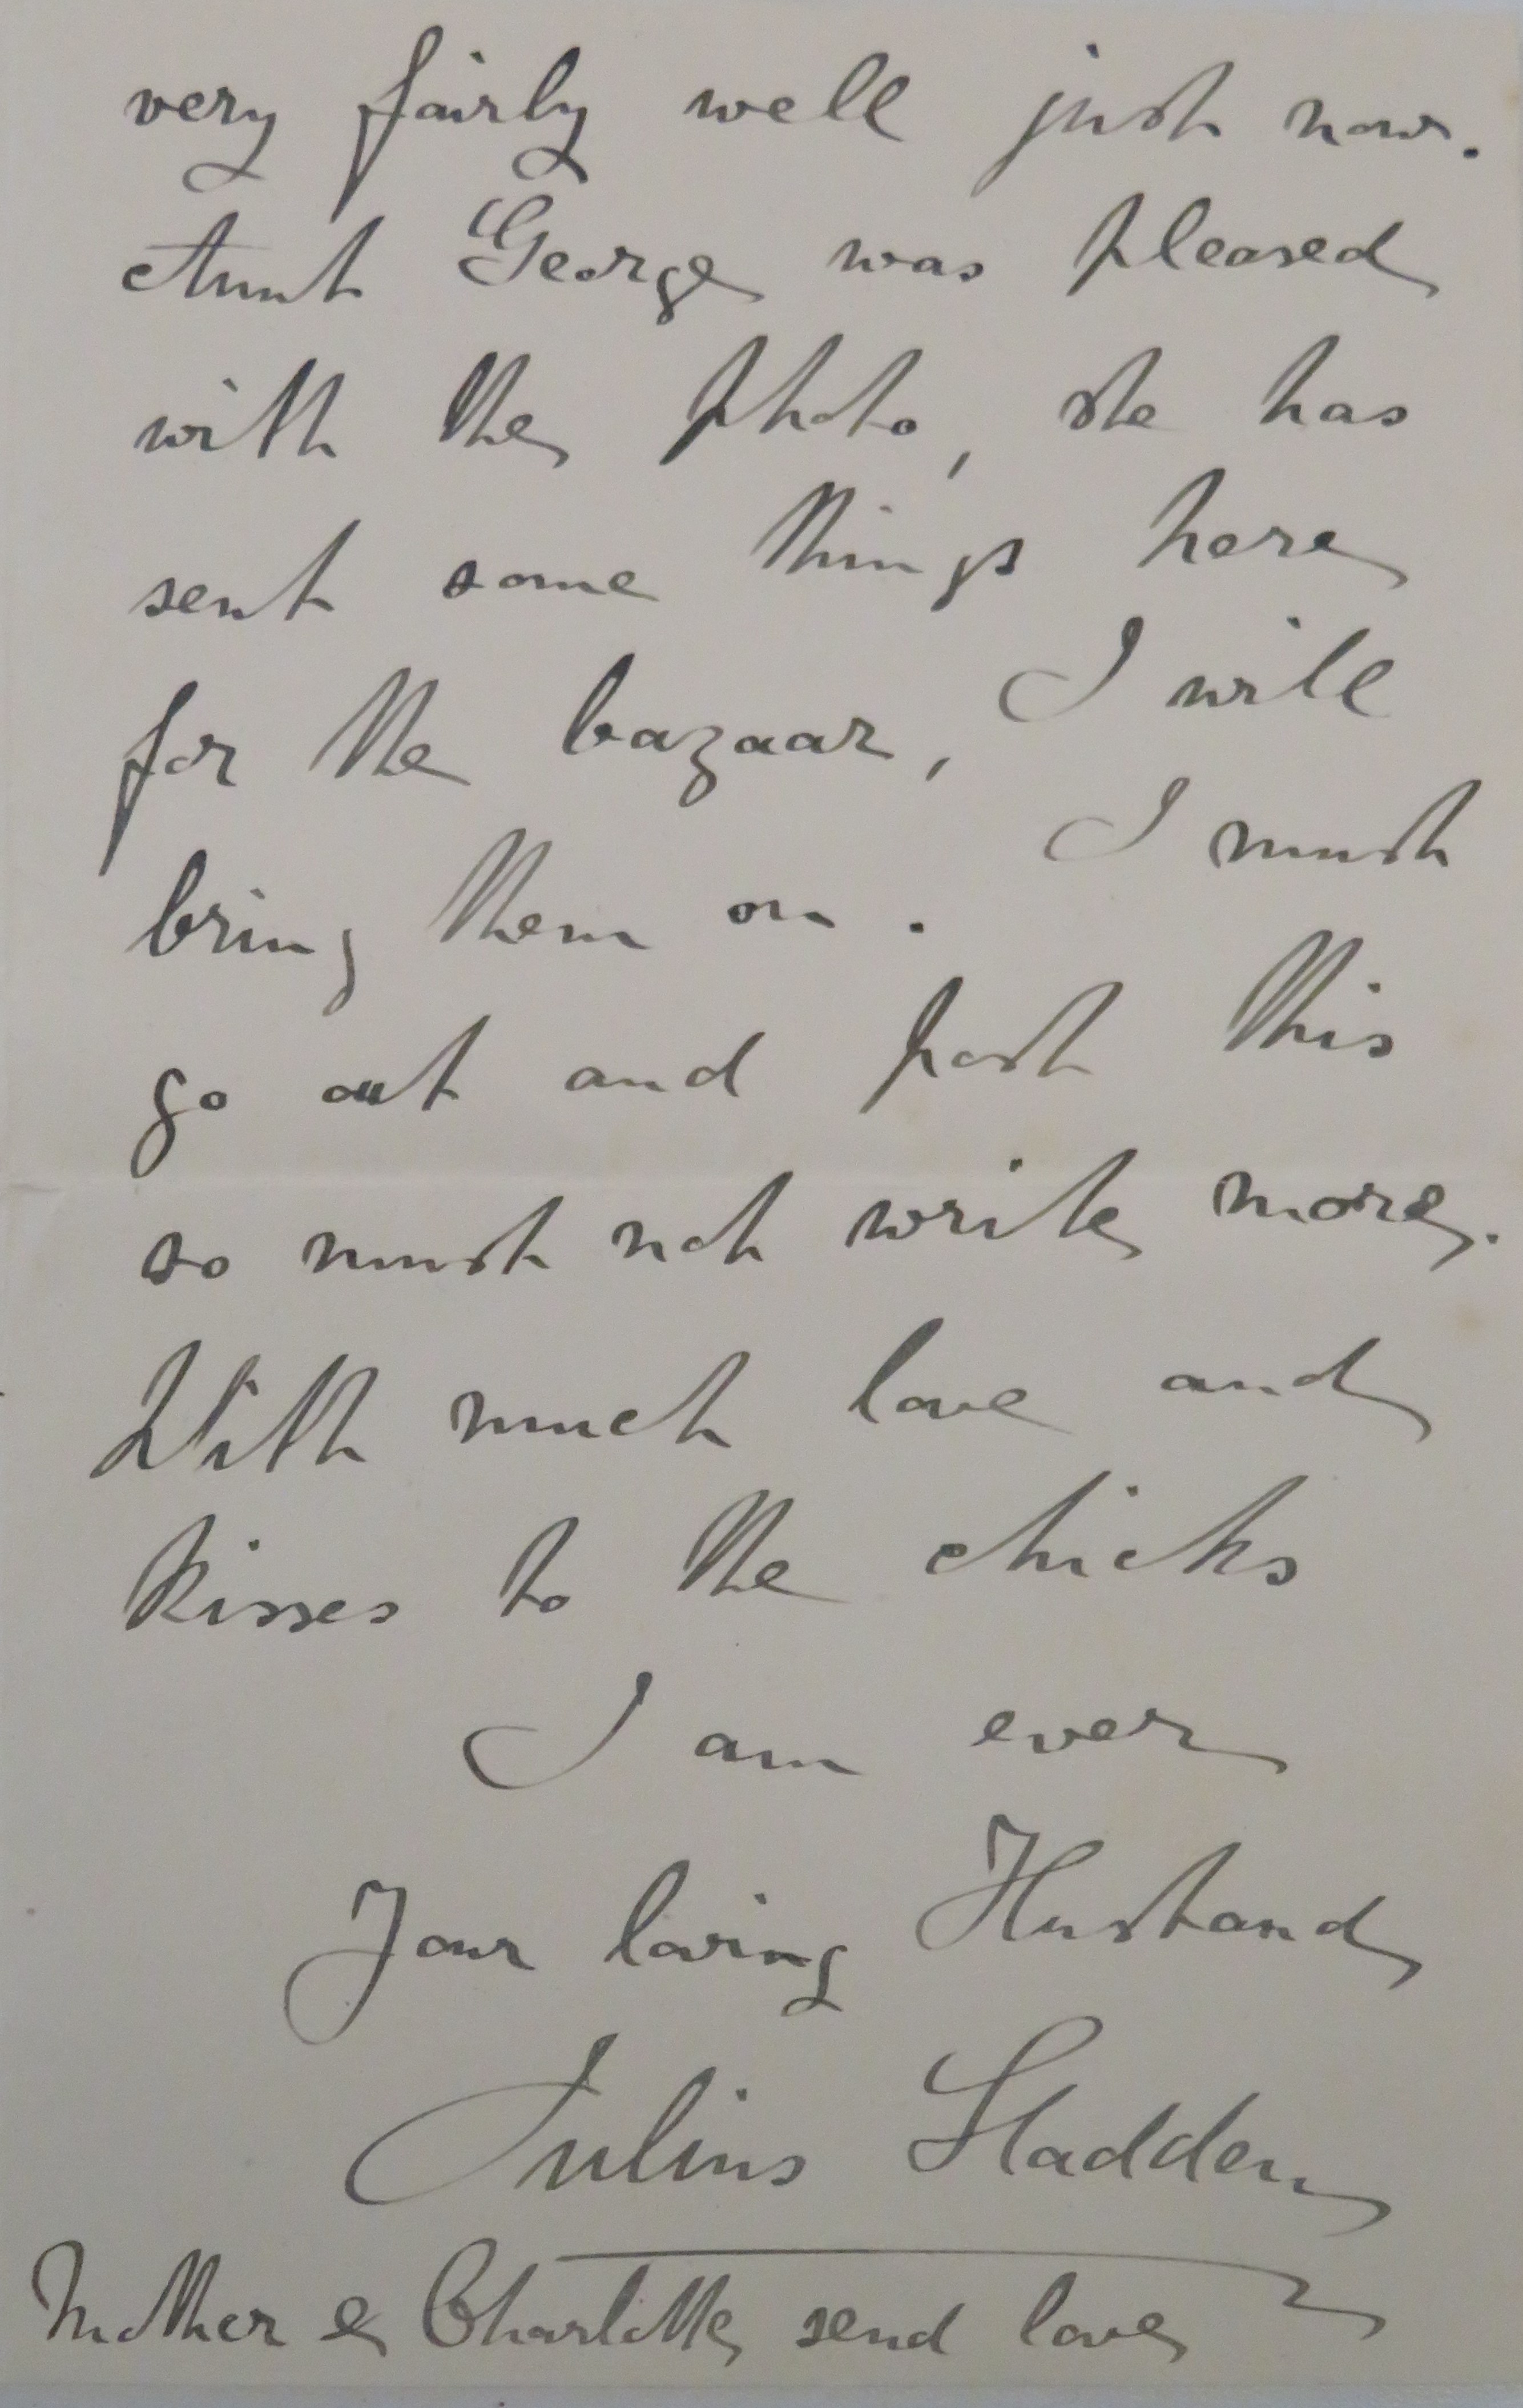 very fairly well just now.
Aunt George was pleased
with the photo, she has
sent some things here
for the bazaar, I will
bring them on. I must
go out and post this
so must not write more.
With much love and
kisses to the chicks
I am ever
Your loving Husband
Julius Sladden
Mother & Charlotte send love